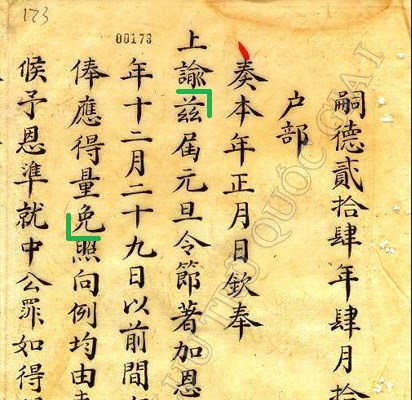 173
00173
嗣德貳拾肆年肆月拾
户部
奏本年正月日欽奉
上諭茲屆元旦令節著加恩
年十二月二十九日以前間
俸應得量免照向例均由
候予恩準就中公罪如得
LƯU TRỮ QUỐC GIA I